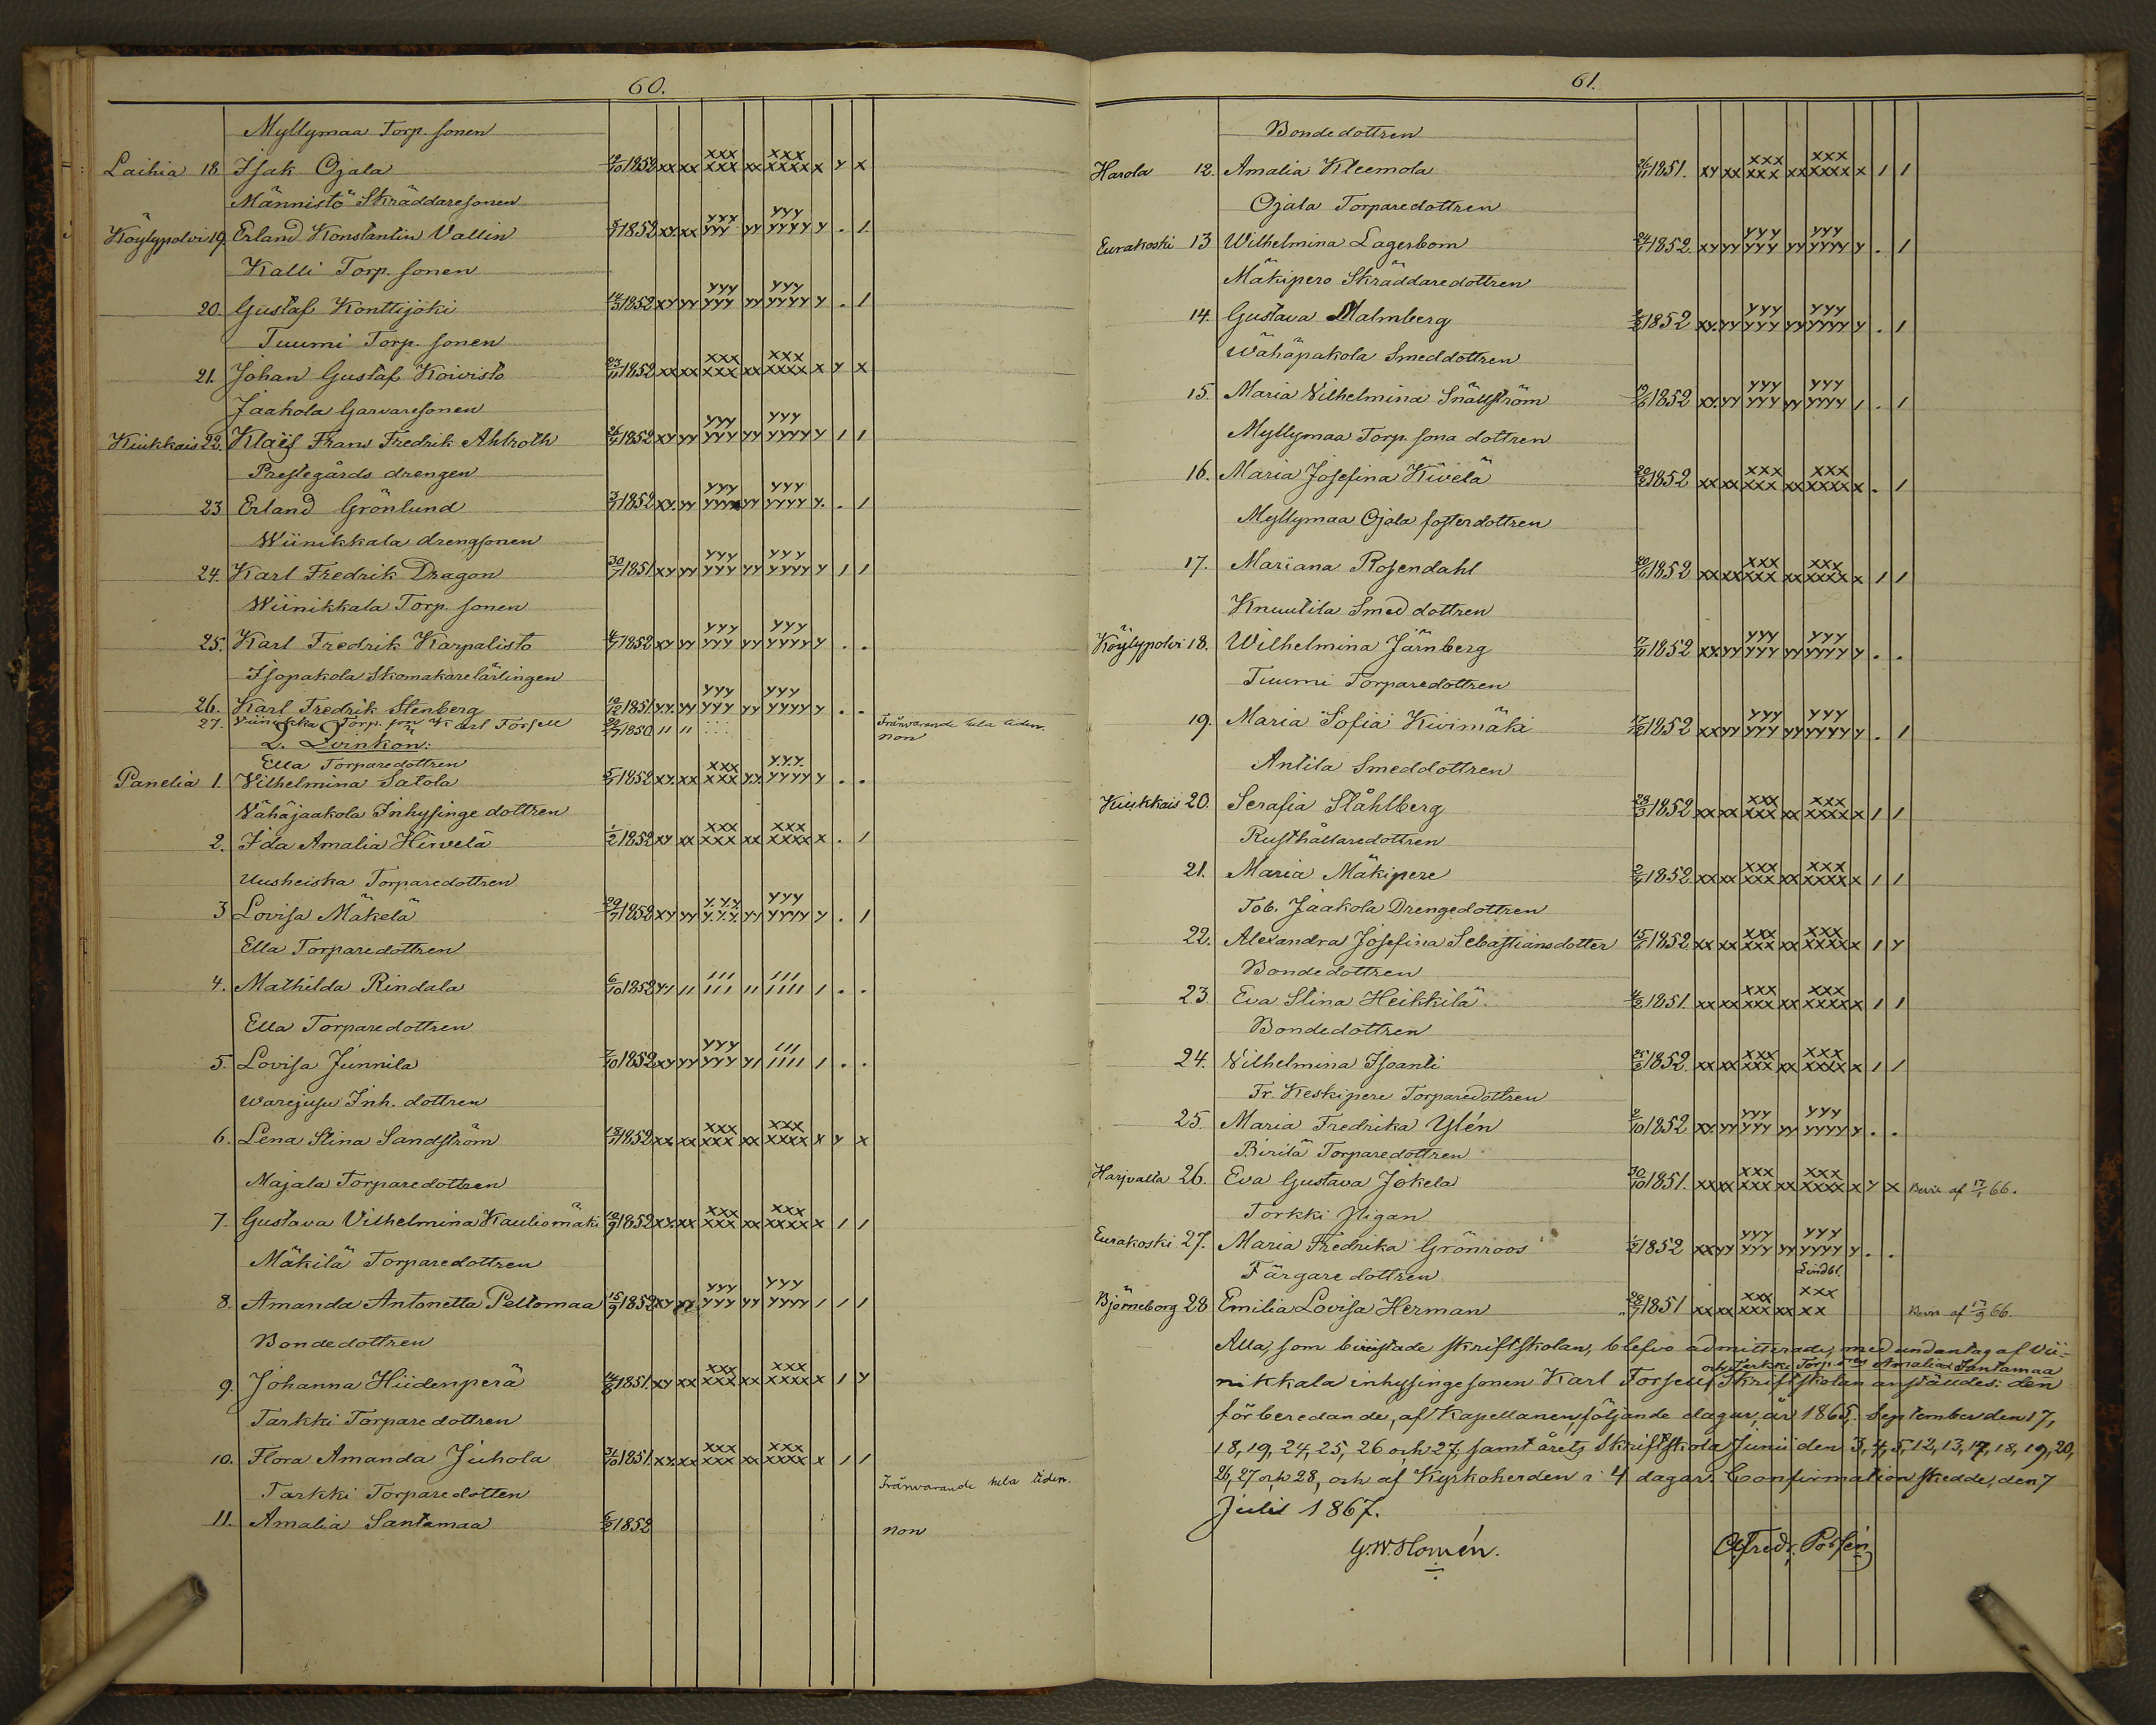 60.
Myllymaa Torp. sonen
Laihia 18 Isak Ojala 1852 xx xx xxx xxx xx xxx xxxx x y x
Männistö Skräddaresonen
Köylypolvi 19. Erland Konstantin Vallin 1852 xx xx yyy yyy yy yyy yyyy y . 1
Kalli Torp. sonen
20. Gustaf Konttijoki 1852 xy yy yyy yyy yy yyy yyyy y . 1
Tuumi Torp. sonen
21. Johan Gustaf Koivisto 1852 xx xx xxx xxx xx xxx xxxx x y x
Jaakola Garvaresonen
Kiukkais 22. Klaës Frans Fredrik Ahlroth 1852 xy yy yyy yyy yy yyy yyyy y 1 1
Prestegårds drengen
23 Erland Grönlund 1852 xx yy yyy yyy yy yyy yyyy y . 1
Wiinikkala drengsonen
24. Karl Fredrik Dragon 30/7 1851 xy yy yyy yyy yy yyy yyyy y 1 1
Wiinikkala Torp. sonen
25. Karl Fredrik Karpalisto 1852 xy yy yyy yyy yy yyy yyyy y . .
Isopakola Skomakarelärlingen
26. Karl Fredrik Stenberg 1851 xy yy yyy yyy yy yyy yyyy y . .
27. Torp. son Karl Forsell 1850 Frånvarande hela tiden.
non
2. Qvinkön:
Ella Torparedottren
Panelia 1. Vilhelmina Satola 1852 xx xx xxx xxx yy yyy yyyy y . .
Vähäjaakola Inhysinge dottren
2. Ida Amalia Hirvelä 1/2 1852 xy xx xxx xxx xx xxx xxxx x . 1
Uusheiska Torparedottren
3 Lovisa Mäkelä 1852 xy yy yyy yyy yy yyy yyyy y . 1
Ella Torparedottren
4. Mathilda Rindala 6/10 1852 y1 11 111 111 11 111 1111 1 . .
Ella Torparedottren
5. Lovisa Junnila 7/10 1852 xy yy yyy yyy y1 111 1111 1 . .
Warejusu Inh. dottren
6. Lena Stina Sandström 1852 xx xx xxx xxx xx xxx xxxx x y x
Majala Torparedottren
7. Gustava Vilhelmina Kauliomäki 1852 xx xx xxx xxx xx xxx xxxx x 1 1
Mäkilä Torparedottren
8. Amanda Antonetta Peltomaa 15/9 1852 xy yy yyy yyy yy yyy yyyy 1 1 1
Bondedottren
9. Johanna Hiidenperä 1851 xy xx xxx xxx xx xxx xxxx x 1 y
Tarkki Torparedottren
10. Flora Amanda Juhola 31/10 1851 xx xx xxx xxx xx xxx xxxx x 1 1
Tarkki Torparedotten Frånvarande hela tiden.
11. Amalia Santamaa 1852 non
61.
Bondedottren
Harola 12. Amalia Kleemola 1851. xy xx xxx xxx xx xxx xxxx x 1 1
Ojala Torparedottren
Eurakoski 13 Wilhelmina Lagerbom 1852. xy yy yyy yyy yy yyy yyyy y . 1
Mäkipero Skräddaredottren
14. Gustava Malmberg 1852 xx yy yyy yyy yy yyy yyyy y . 1
Wähäpakola Smeddottren
15. Maria Vilhelmina Snällström 1852 xx yy yyy yyy yy yyy yyyy 1 . 1
Myllymaa Torp. sona dottren
16. Maria Josefina Kivelä 1852 xx xx xxx xxx xx xxx xxxx x . 1
Myllymaa Ojala fosterdottren
17. Mariana Rosendahl 1852 xx xx xxx xxx xx xxx xxxx x 1 1
Knuutila Smed dottren
Köylypolvi 18. Wilhelmina Järnberg 1852 xx yy yyy yyy yy yyy yyyy y . .
Tuumi Torparedottren
19. Maria Sofia Kivimäki 1852 xx yy yyy yyy yy yyy yyyy y . 1
Antila Smeddottren
Kiukkais 20. Serafia Ståhlberg 1852 xx xx xxx xxx xx xxx xxxx x 1 1
Rusthållaredottren
21. Maria Mäkipere 1852 xx xx xxx xxx xx xxx xxxx x 1 1
Tob. Jaakola Drengedottren
22. Alexandra Josefina Sebastiansdotter 1852 xx xx xxx xxx xx xxx xxxx x 1 y
Bondedottren
23. Eva Stina Heikkilä 1851. xx xx xxx xxx xx xxx xxxx x 1 1
Bondedottren
24. Vilhelmina Isoanti 1852. xx xx xxx xxx xx xxx xxxx x 1 1
Fr. Keskipere Torparedottren
25. Maria Fredrika Ylén 1852 xx yy yyy yyy yy yyy yyyy y . .
Birilä Torparedottren
Harjvalta 26. Eva Gustava Jokela 30/10 1851. xx xx xxx xxx xx xxx xxxx x y x Bevis af 66.
Torkki Pigan
Eurakoski 27. Maria Fredrika Grönroos 1852 xx yy yyy yyy yy yyy yyyy y . .
Färgare dottren Lindbl.
Björneborg 28 Emilia Lovisa Herman 1851 xx xx xxx xxx xx xxx xx Bevis af 66.
Alla, som bivistade skriftskolan, blefvo admitterade, med undantag af Vii-
och Tarkki Torp. Amalia Santamaa
nikkala inhysingesonen Karl Forsell. Skriftskolan anställdes: den
förberedande, af Kapellanen, följande dagar, år 1865, September den 17,
18, 19, 24, 25, 26 och 27, samt årets Skriftskola Junii den 3, 4, 5, 12, 13, 17, 18, 19, 20,
26, 27 och 28, och af Kyrkoherden i 4 dagar. Confirmation skedde, den 7
Julii 1867.
G.W. Homén. Alfredr. Polsén